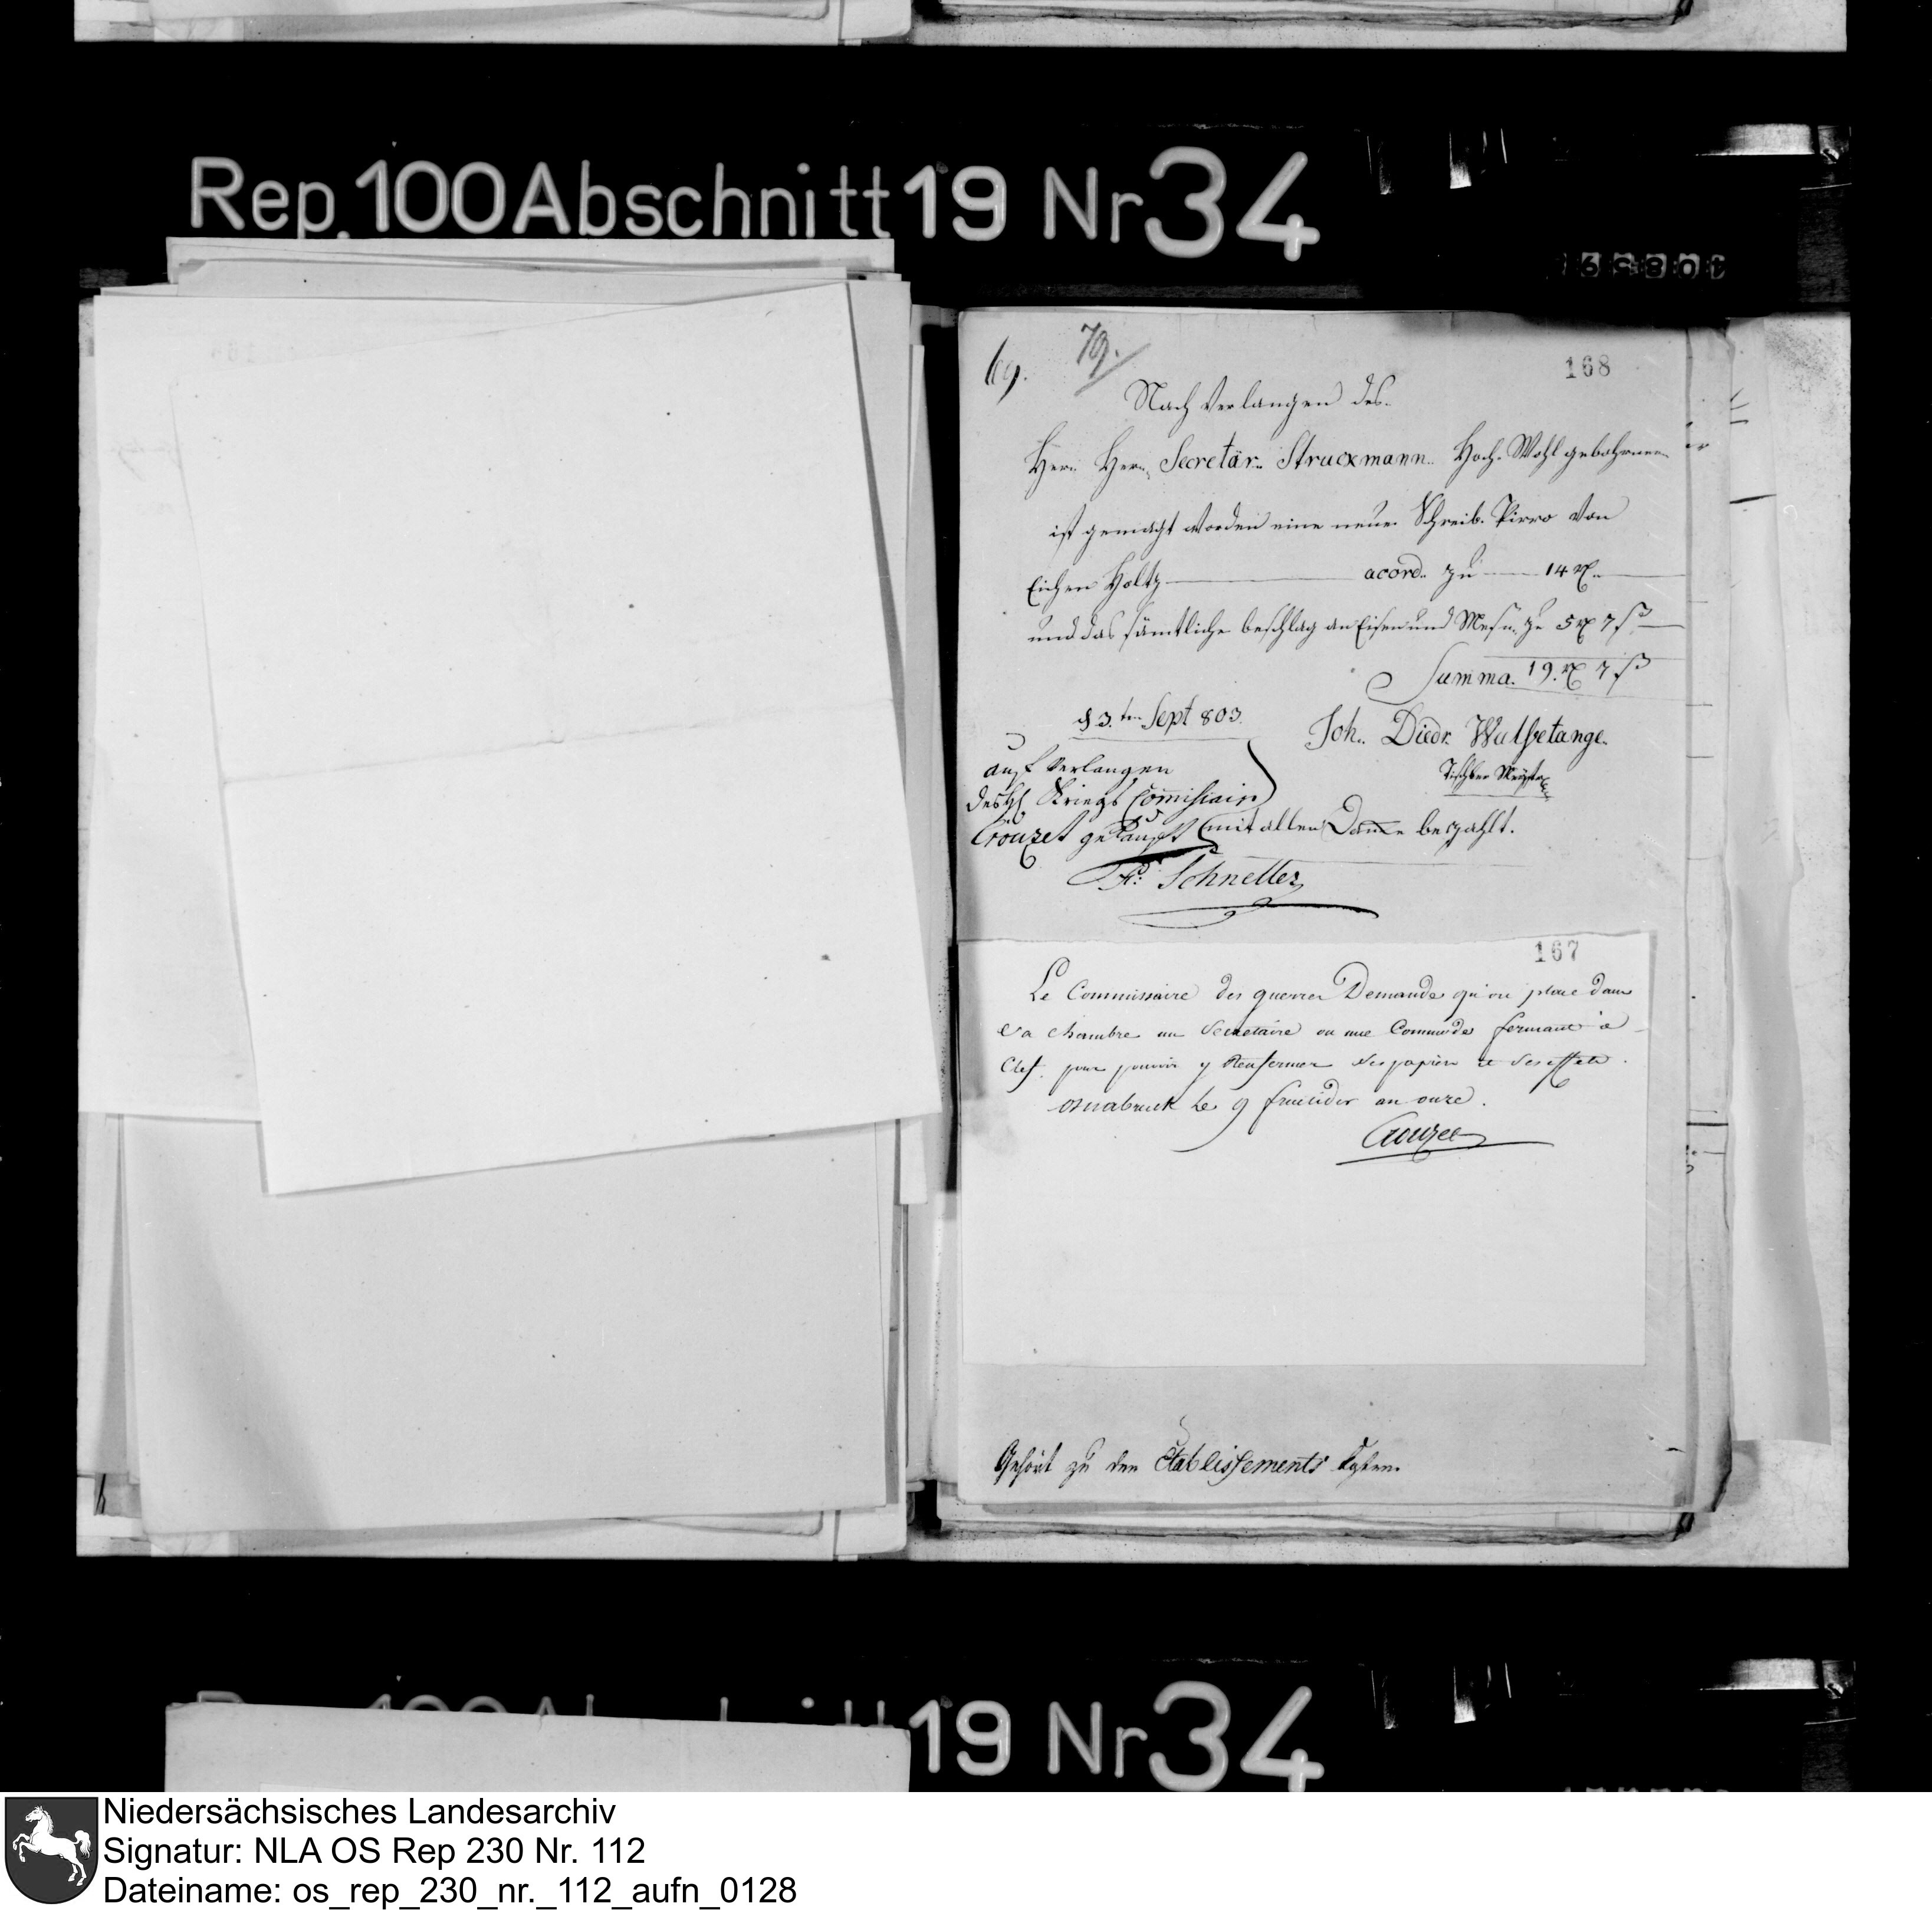 Rep. 100 Abschnitt 19 Nr 34
69.
79.
168
Nach Verlangen des
Herrn Herrn Secretär Struckmann Hoch Wohl gebohrnen
ist gemagt worden eine neue Schreib Pirro von
Eichen Holtz acord. zu 14 Rt.
und das sämtliche beschlag an Eisen und Mesn. zu 5 Rt 7 ß
Summa. 19. Rt 7 ß
d 3.ten Sept 803.
Joh. Diedr. Wulfetange.
Tischler Meyster
auf Verlangen
des H Kriegs Comissair
Crouzet gekauft mit allen Dancke bezahlt.
Fr: Schnetter
167
Le Commissaire des guerres Demande qu'on place dans
Sa chambre un Secretaire ou une Commode fermant à
Clef. pour pouvoir y Renfermer Ses papiers et Ses effets.
Osnabruck le 9 fructidor an onze.
Crouzet
Gehört zu den Etablissements Kosten.
19 Nr 34
Niedersächsisches Landesarchiv
Signatur: NLA OS Rep 230 Nr. 112
Dateiname: os_rep_230_nr._112_aufn_0128